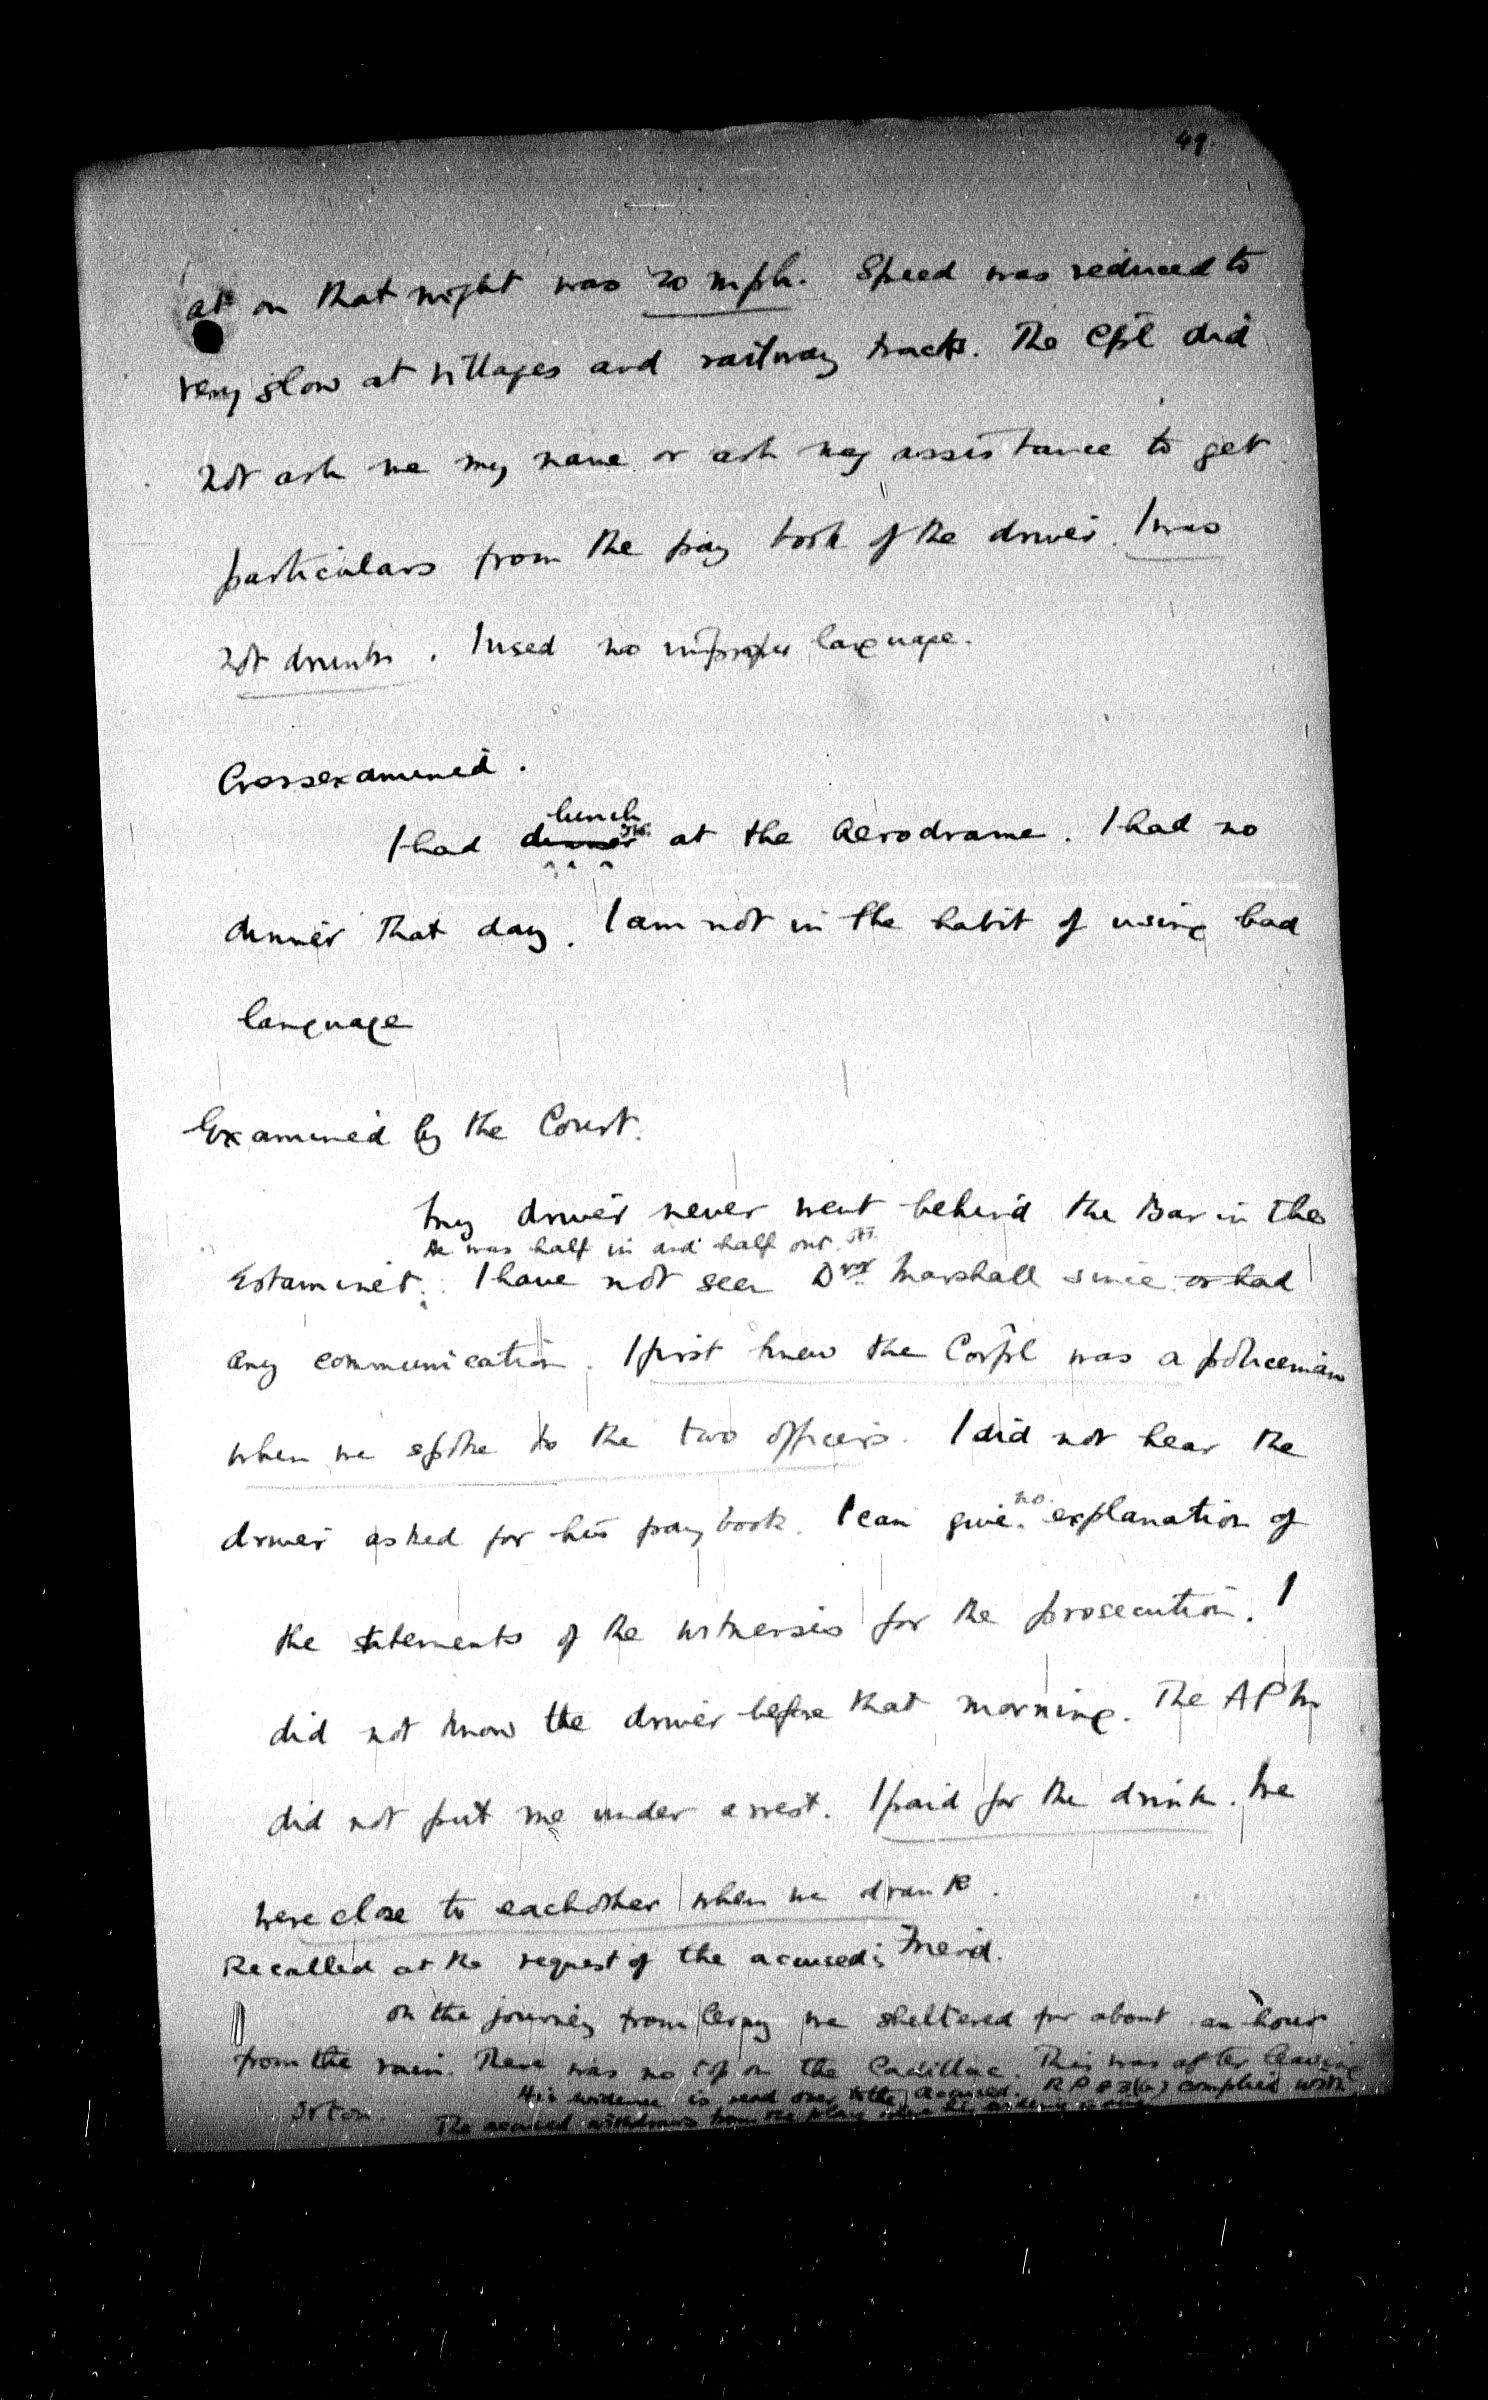 49.
at on that night was 20 mph. Speed was reduced to
very slow at villages and railway tracks. The Cpl did
not ask me my name or ask my assistance to get
particulars from the pay book of the driver. I was
not drunk. I used no improper language.
Crossexamined.
lunch
I had dinner at the Aerodrome. I had no
dinner that day. I am not in the habit of using bad
language
Examined by the Court.
My driver never went behind the Bar in the
He was half in and half out
Estaminet. I have not seen Dvr Marshall since or had
any communication. I first knew the Corpl was a policeman
when we spoke to the two officers. I did not hear the
no
driver asked for his pay book. I can give explanation of
the statements of the witnesses for the prosecution. I
did not know the driver before that morning. The APM
did not put me under arrest. I paid for the drink. We
were close to eachother when we drank.
Recalled at the request of the accused's Friend.
On the journey from we sheltered for about an hour
from the rain. There was no top on the Cadillac. This was after leaving
His evidence is read over to the accused. RP 83(B) complied with
The accused withdraws from the place where